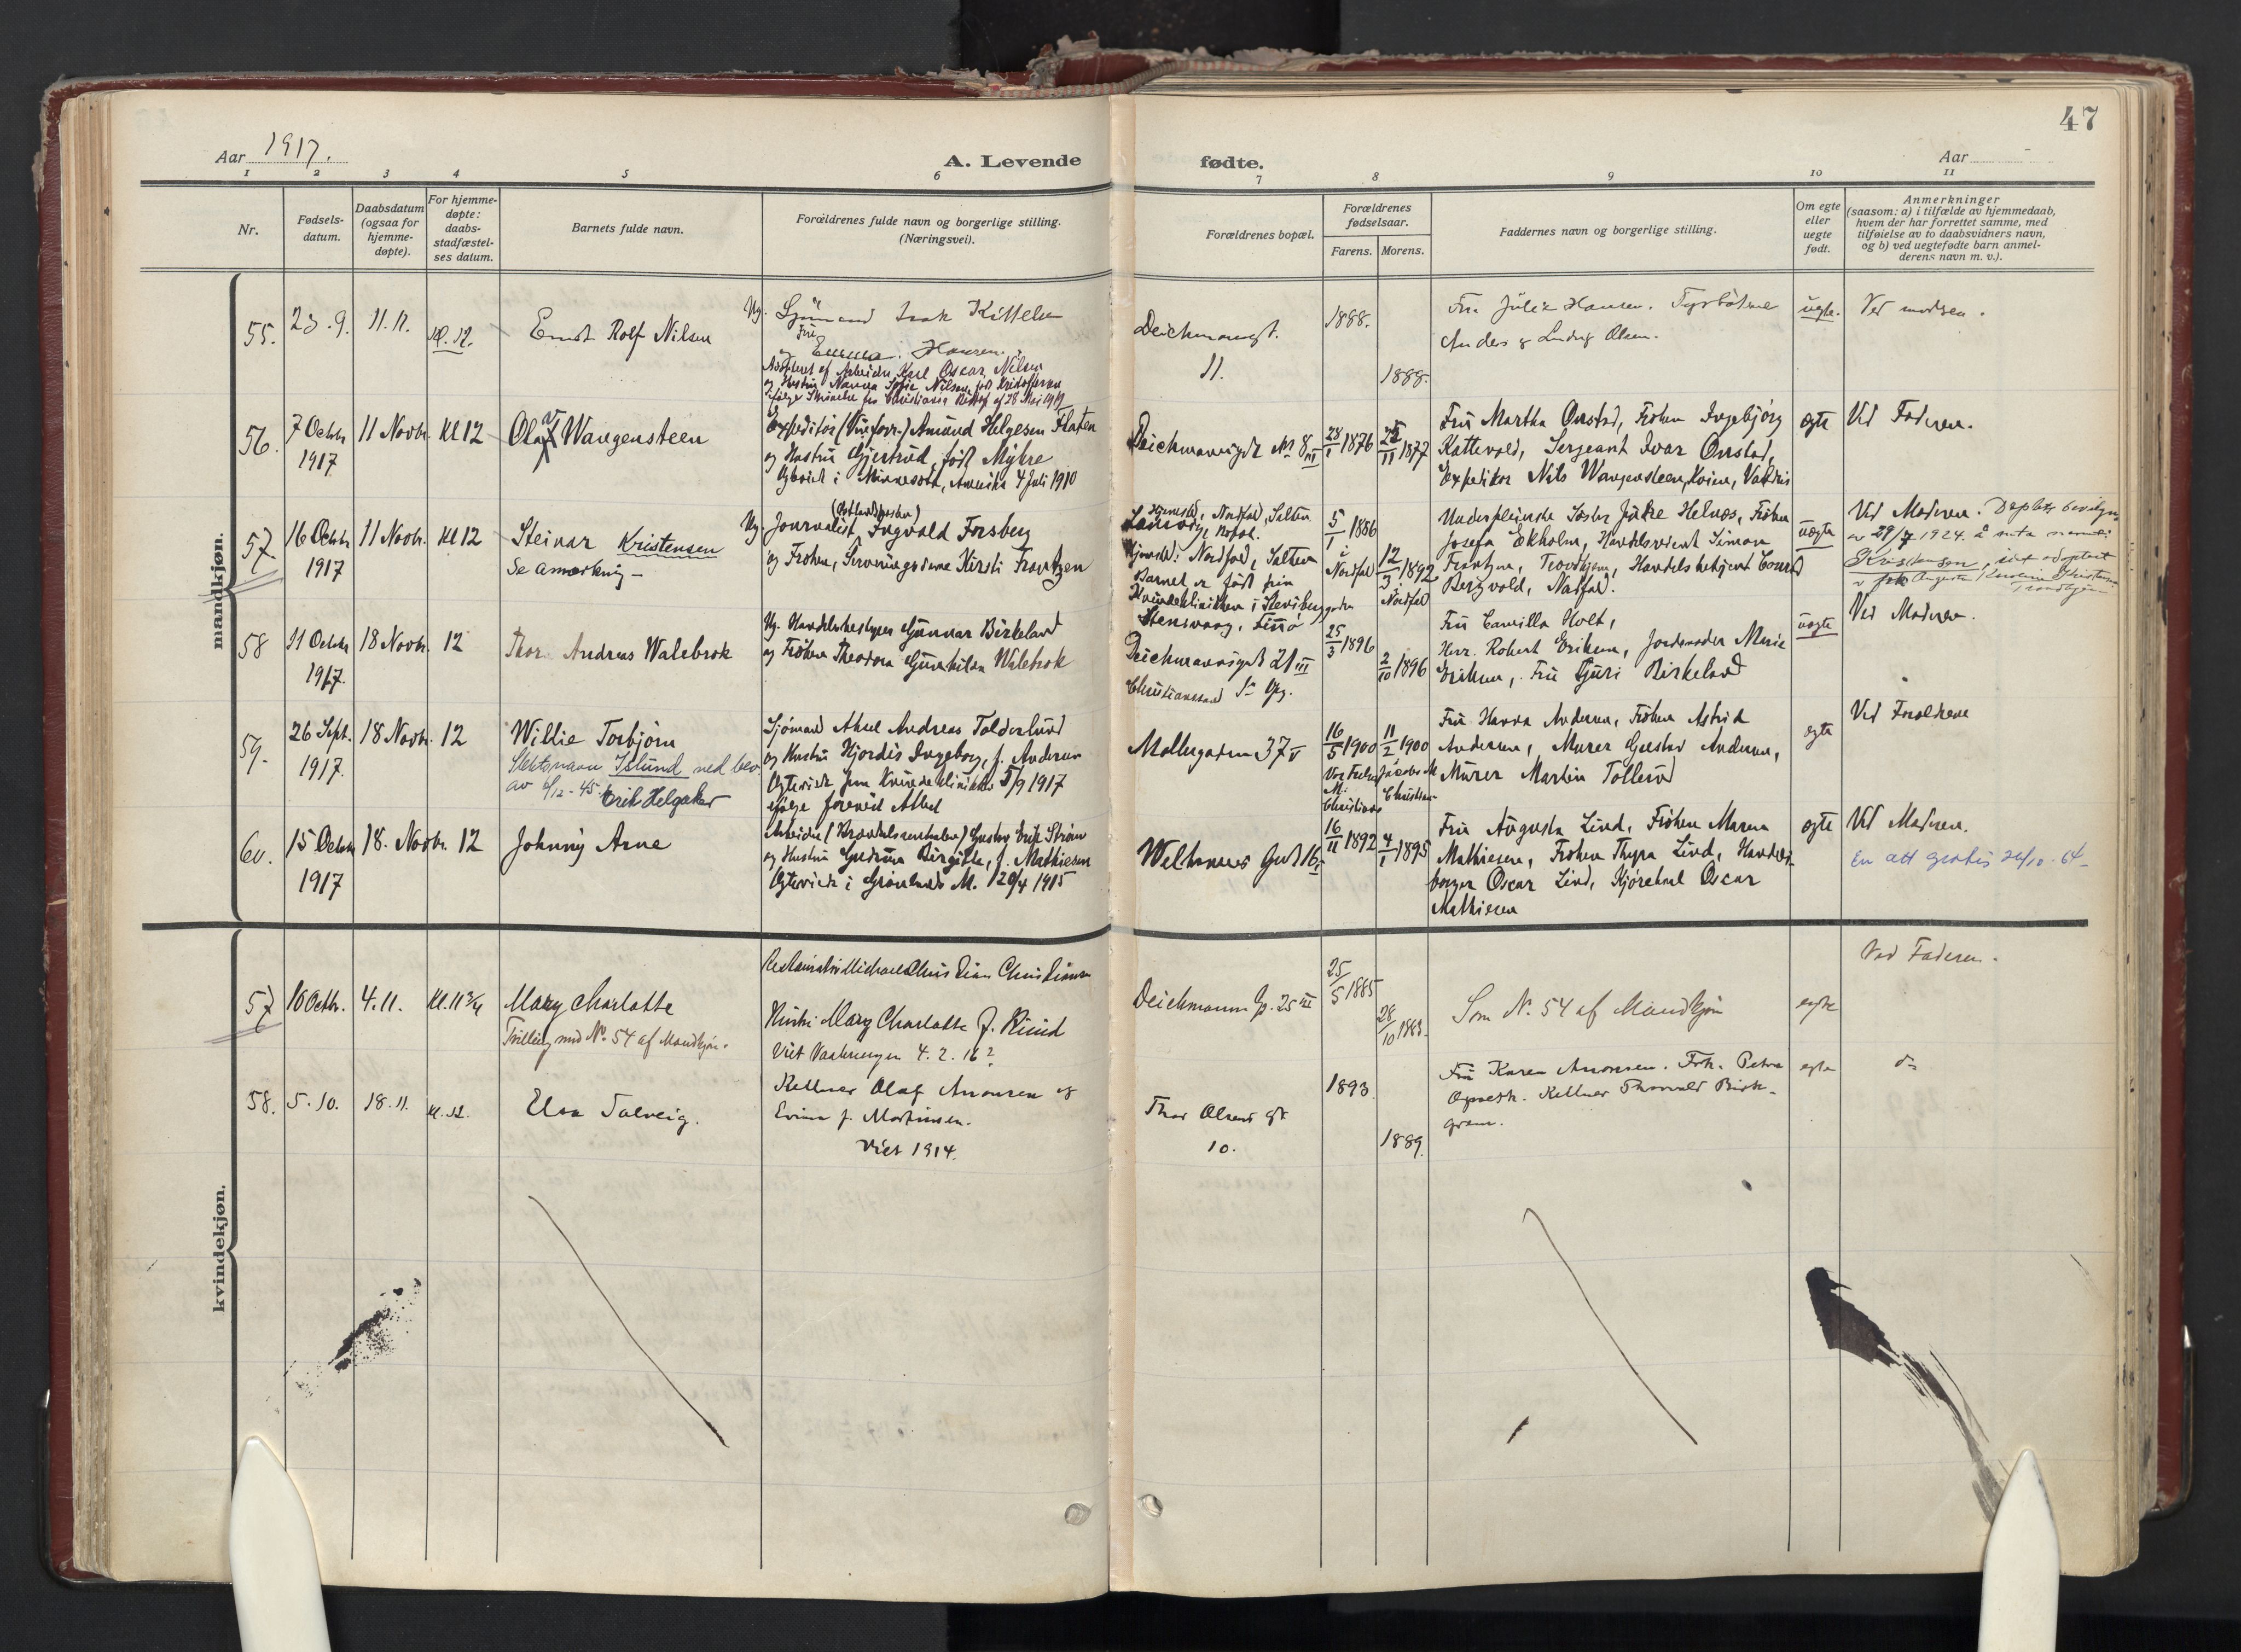 47
Aar 1917.
A. Levende
fødte.
Aar
1 2 3 4 5 6 7 8 9 10 11
Nr.
Fødsels-
datum.
Daabsdatum
(ogsaa for
hjemme-
døpte).
For hjemme-
døpte:
daabs-
stadfæstel-
ses datum.
Barnets fulde navn.
Forældrenes fulde navn og borgerlige stilling.
(Næringsvei).
Forældrenes bopæl.
Forældrenes
fødselsaar.
Farens. Morens.
Faddernes navn og borgerlige stilling.
Om egte
eller
uegte
født.
Anmerkninger
(saasom: a) i tilfælde av hjemmedaab,
hvem der har forrettet samme, med
tilføielse av to daabsvidners navn,
og b) ved uegtefødte barn anmel-
derens navn m. v.).
mandkjøn.
55. 23.9. 11.11. Kl. 12.
Ernst Rolf Nilsen
Ug. Sjømand Isak Kittelsen
Fru
og Emma Hansen.
Adoptert af Arbeider Karl Oscar Nilsen
og Hustru Nanna Sofie Nilsen, født Kristoffersen
ifølge Skrivelse fra Christiania Bishop af 28 Mai 1919
Deichmansgt.
11.
1888.
1888.
Fru Julie Hansen.
Anders & Ludvig Olsen.
uegte.
Ved modren.
56. 7 Octbr 1917
11 Novbr. Kl 12
Olav Wangensteen
Expeditør (Vinforr.) Amund Helgesen Flaten
og Hustru Gjertrud, født Myhre
Egteviet i Minnesota, Amerika 4 Juli 1910
Deichmannsgt No 8 III
28/1 1876
25/11 1877
Fru Martha Onstad, Frøken Ingebjørg
Kattevold, Sergeant Ivar Onstad,
Expeditør Nils Wangensteen, Kvien, Valdris
egte
Ved Faderen.
57 16 Octbr 1917
11 Novbr. Kl 12
Steinar Kristensen
Se Anmerkning -
(Østlandsposten)
Ug. Journalist Ingvald Forsberg
og Frøken, Serveringsdame Kirsti Frantzen
Hjemsted, Nordfold, Salten
Larvig, Bopæl.
Hjemsted: Nordfold, Salten
Barnet er født paa
Kvindeklinikken i Stensberggaden
5/1 1886
i Nordfold
12/3 1892
Nordfold
Underpleierske Søster Jakke Helnæs, Frøken
Josefa Ekholm, Handelsreisende Simon
Frantzen, Trondhjem, Handelsbetjent Conrad
Bergvold, Nordfold.
uegte
Ved Moderen. Døpte bevilgn.
av 29/7 1924 å anta navnet:
Kristensen, idet adoptert
av frk Augusta Karoline Kristensen
Trondhjem
58 11 Octbr 1917.
18 Novbr. 12
Thor Andreas Walebrok
Ug. Handelsbestyrer Gunnar Birkeland
og Frøken Theodora Gunhilda Walebrok
Stensvaag, Finnø
Deichmannsgate 21 III
Christianssand S. Opg.
25/3 1896
2/10 1896
Fru Camilla Holt,
Herr. Robert Eriksen, Jordemoder Marie
Eriksen, Fru Guri Birkeland
uegte
Ved Moderen.
59. 26 Sept. 1917.
18 Novbr. 12
Willie Torbjørn
Slektsnavn Islund ned bev.
av 6/12-45. Erik Helgaker
Sjømand Aksel Andreas Tolderlund
og Hustru Hjordis Ingeborg, f. Andersen
Egteviet paa Kvindeklinikken 5/9 1917
ifølge forevist Attest
Møllergaden 37 V
16/5 1900
11/2 1900
Vor Frelsers M. Christiania
Jacobs M Christiania
Fru Hanna Andersen, Frøken Astrid
Andersen, Murer Gustav Andersen,
Murer Martin Tollerud
egte
Ved Forældrene
60. 15 Octbr 1917
18. Novbr. 12
Johnny Arne
Arbeider (Brændselscentralen) Gustav Erik Strøm
og Hustru Gudrun Birgitte, f. Mathiesen
Egteviet i Grønlands M. 120/4 1915
Welhavens Gade 16 I
16/11 1892
4/1 1895
Fru Augusta Lind, Frøken Marna
Mathiesen, Frøken Thyra Lind, Handels-
borger Oscar Lind, Kjørekarl Oscar
Mathiesen
egte
Ved Moderen.
En att gratis 26/10-64-
kvindekjøn.
57 16 Octbr. 4.11. Kl. 11 3/4
Mary Charlotte
Tvilling med No. 54 af Mandkjøn.
Restauratør Michael Christian Christiansen
Hustru Mary Charlotte f. Ruud
Viet Vaalerengen 4.2.16?
Deichmans G. 25 III
25/5 1885
28/10 1883.
Som N. 54 af Mandkjøn
egte
Ved Faderen.
58. 5.10. 18.11. Kl. 12.
Elsa Solveig.
Kellner Olaf Aronsen og
Evina f. Martinsen.
Viet 1914.
Thor Olsens gt
10.
1893.
1889.
Fru Karen Aronsen. Frk. Petra
Kellner Thorvald Birk-
gren.
egte
do